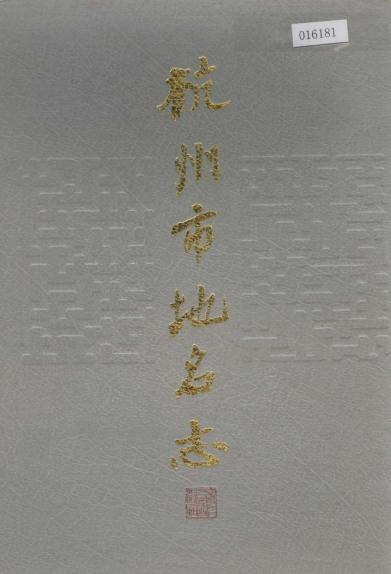 016181
杭州市地名志